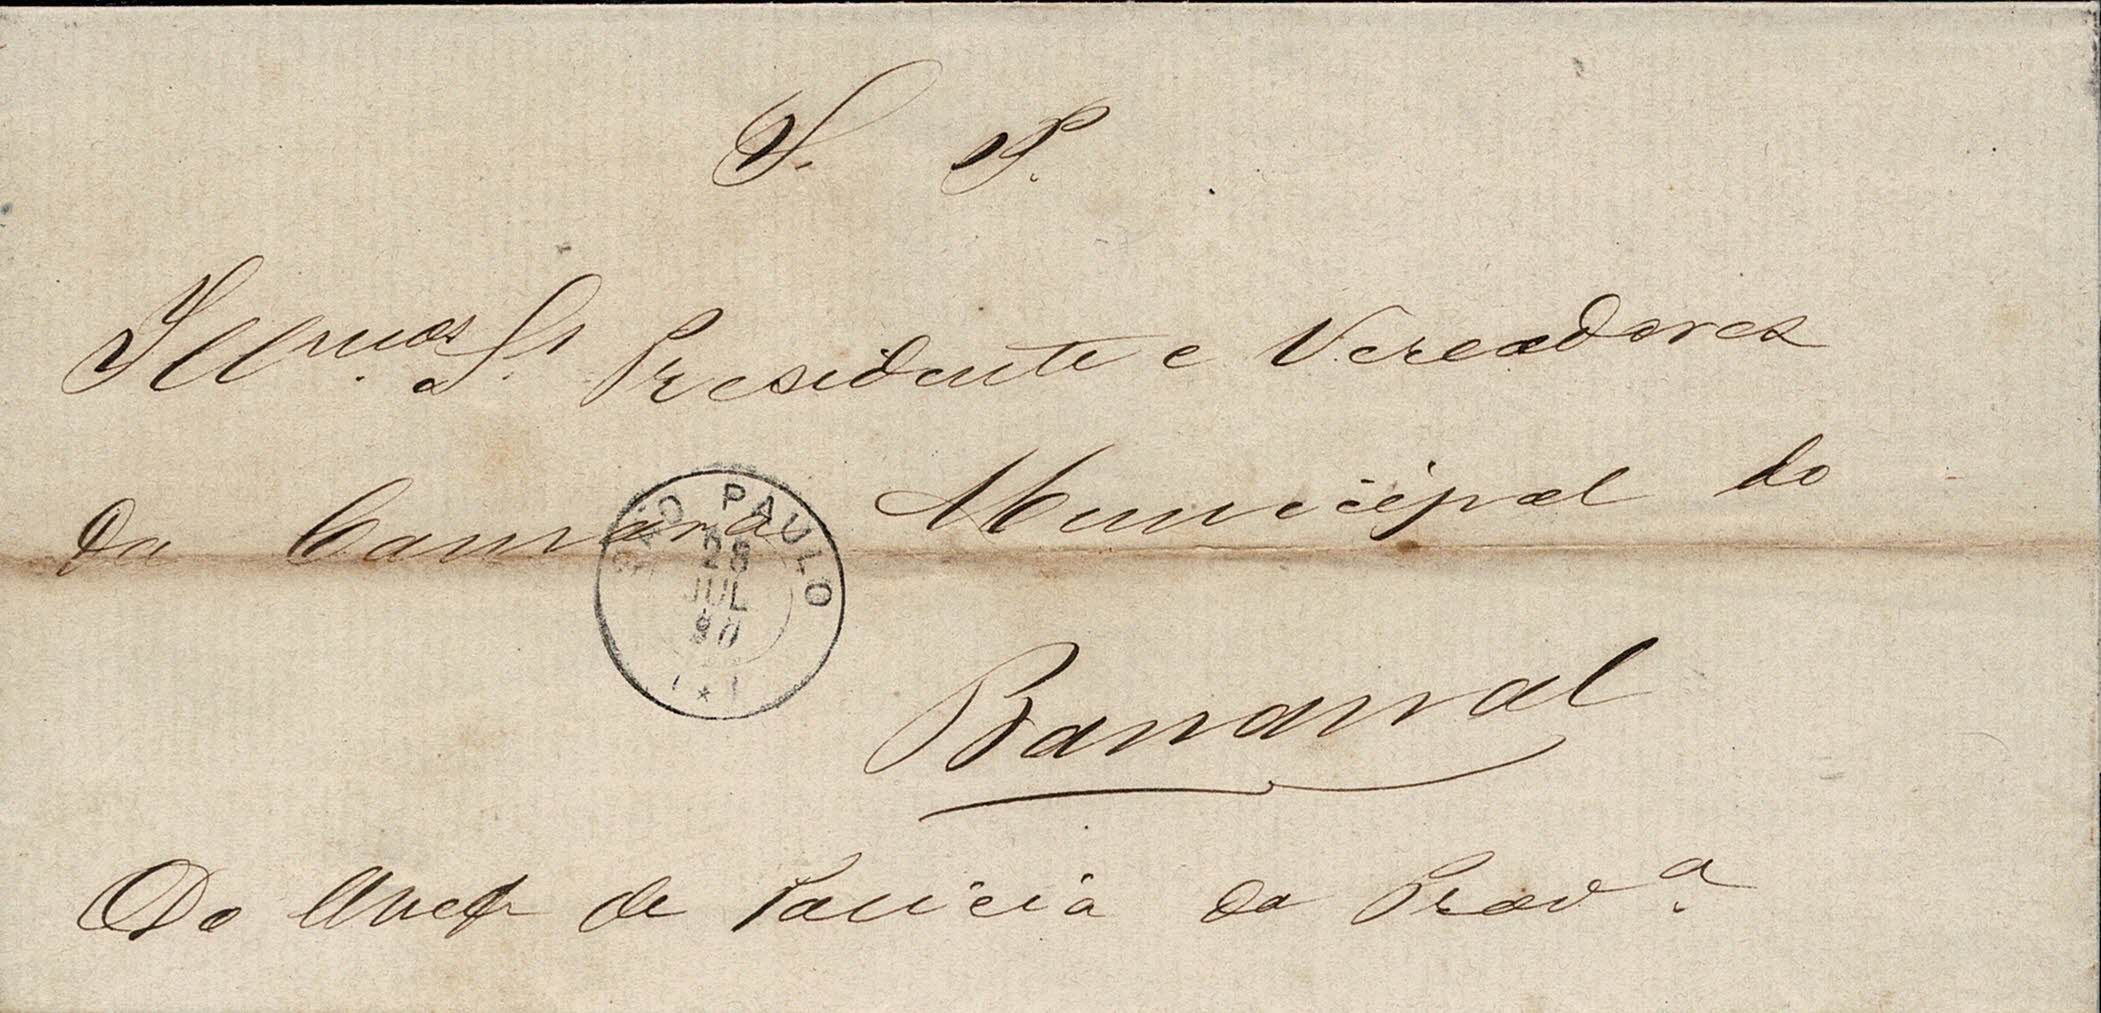 S. P.
Illmos. Srs. Presidente e Vereadores
da Camara Municipal do
SÃO PAULO
28
JUL
80
Bananal
Do Chefe de Policia da Prov.a